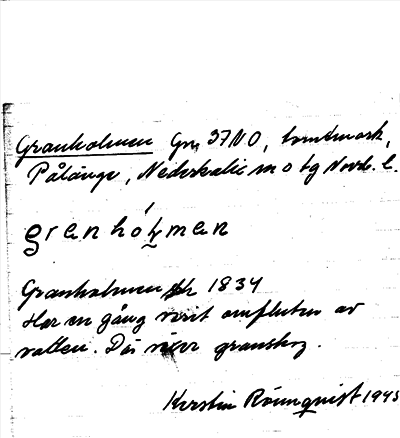 Granholmen Gm 37NO, tomtmark,
Pålänge, Nederkalix m o tg Norrb. l.
grenhólmen
Granholmen 1834
Har en gång varit omfluten av
vatten. Där växer granskog.
Kerstin Rönnquist 1945